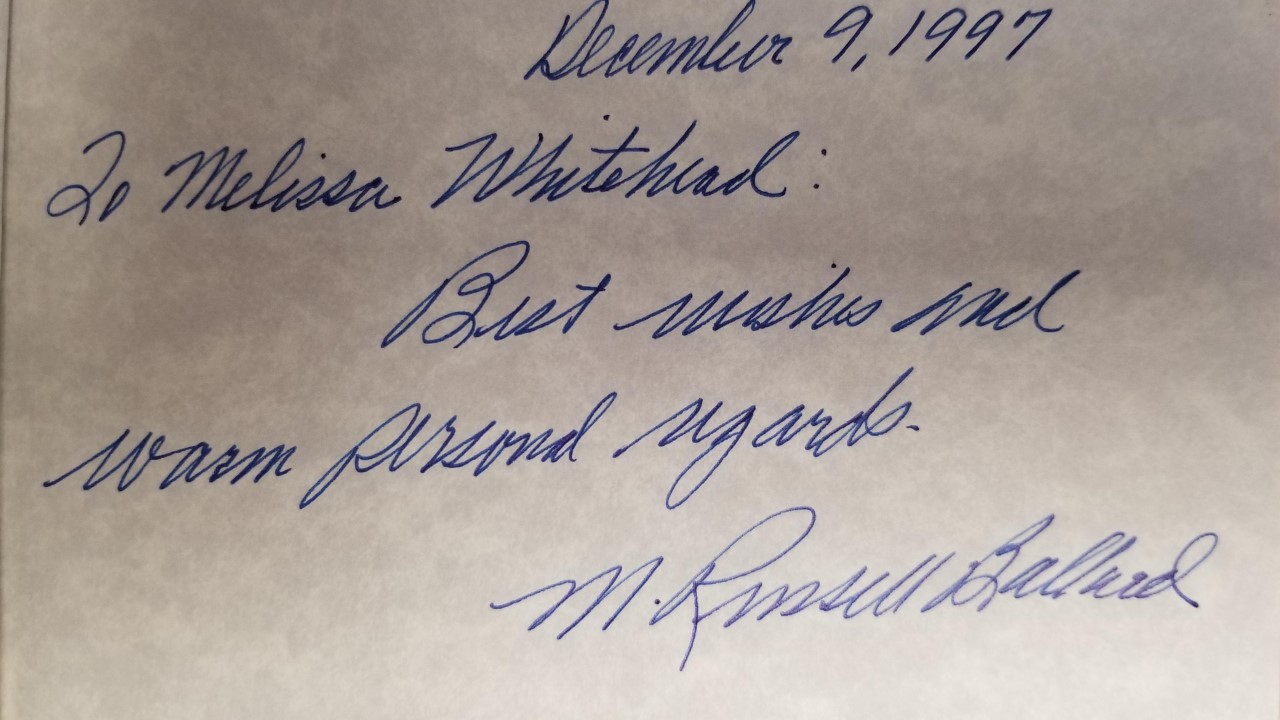 December 9, 1997
To Melissa Whitehead:
Best wishes and
warm personal regards.
M. Russell Ballard